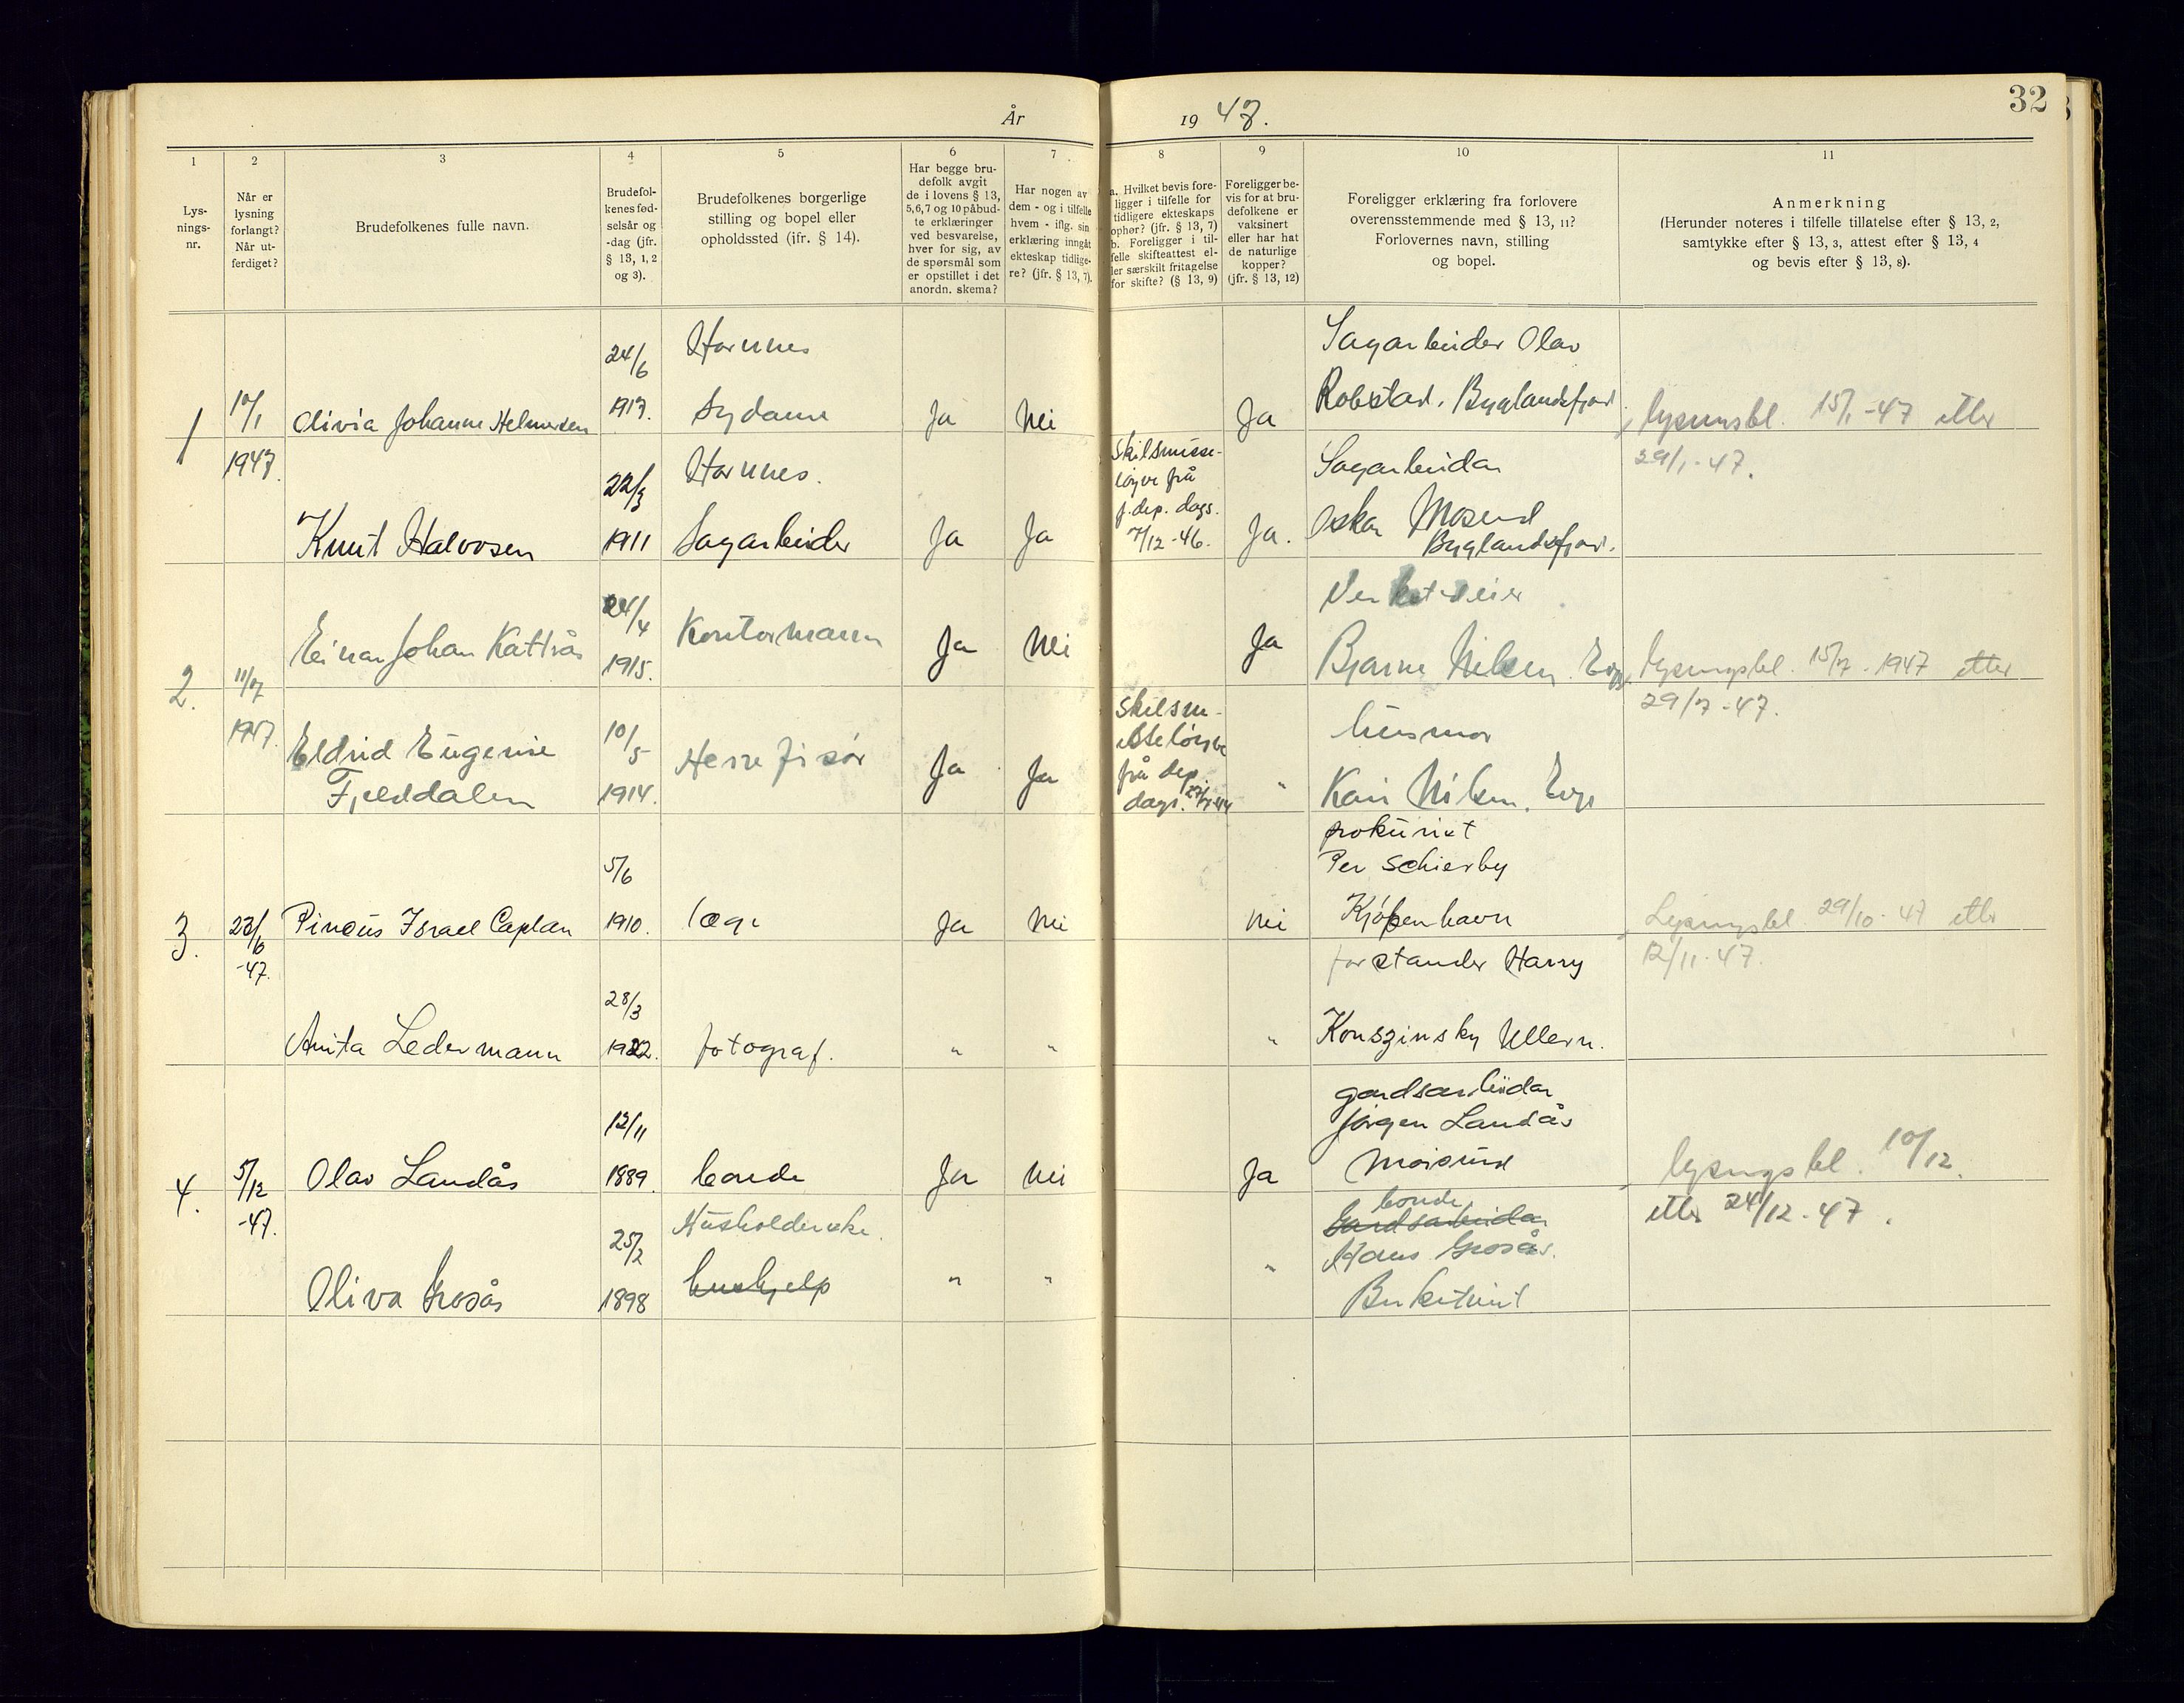 År 1947.
32
1
2
3
4
5
6
7
8
9
10
11
Lys-
nings-
nr.
Når er
lysning
forlangt?
Når ut-
ferdiget?
Brudefolkenes fulle navn.
Brudefol-
kenes fød-
selsår og
-dag (jfr.
§ 13, 1, 2
og 3).
Brudefolkenes borgerlige
stilling og bopel eller
opholdssted (ifr. § 14).
Har begge bru-
defolk avgit
de i lovens § 13,
5,6,7 og 10 påbud-
te erklæringer
ved besvarelse,
hver for sig, av
de spørsmål som
er opstillet i det
anordn. skema?
Har nogen av
dem - og i tilfelle
hvem - iflg. sin
erklæring inngåt
ekteskap tidlige-
re? (jfr. § 13, 7).
a. Hvilket bevis fore-
ligger i tilfelle for
tidligere ekteskaps
ophør? (jfr. § 13, 7)
b. Foreligger i til-
felle skifteattest el-
ler særskilt fritagelse
for skifte? (§ 13, 9)
Foreligger be-
vis for at bru-
defolkene er
vaksinert
eller har hat
de naturlige
kopper?
(jfr. § 13, 12)
Foreligger erklæring fra forlovere
overensstemmende med § 13, 11?
Forlovernes navn, stilling
og bopel.
Anmerkning
(Herunder noteres i tilfelle tillatelse efter § 13, 2,
samtykke efter § 13, 3, attest efter § 13, 4
og bevis efter § 13, 8).
1
10/1
1947.
Olivia Johanne Helmersen
24/6
1917.
Hornnes
Sydame
Ja
Nei
Ja
Sagarbeider Olav
Robstad. Byglandsfjord.
lysningsbl. 15/1-47 etter
29/1-47.
Knut Halvorsen
22/3
1911
Hornnes.
Sagarbeider
Ja
Ja
Skilsmisse-
løyve frå
j.dep. dags.
7/12-46.
Ja.
Sagarbeidar
Oskar Mosend
Byglandsfjord.
2.
11/7
1947.
Einar Johan Kattrås
24/4
1915.
Kontormann
Ja
Nei
Ja
Bjarne Nilsen. Evje
lysningsbl. 15/7-1947 etter
29/7-47.
Eldrid Eugenie
Fjelddalen
10/5
1914.
Herrefrisør
Ja
Ja
Skilsm-
isseløyve
frå dep.
dags.
"
husmor
Kari Nilsen. Evje
3.
23/6
-47.
Pincus Israel Caplan
5/6
1910.
læge
Ja
Nei
Nei
prokurist
Per Schierby
Kjøbenhavn
Lysningsbl. 29/10-47 etter
12/11-47.
Anita Ledermann
28/3
1922.
fotograf.
"
"
"
forstander Harry
Konszinsky Ullern.
4.
5/12
-47.
Olav Landås
12/11
1889.
bonde
Ja
Nei
Ja
gardsarbeidar
Jørgen Landås
Moisund
lysningsbl. 10/12.
etter 24/12-47.
Oliva Grosås
25/2
1898
Husholderske.
hushjelp
"
"
"
bonde
Gardsarbeidar
Hans Grosås.